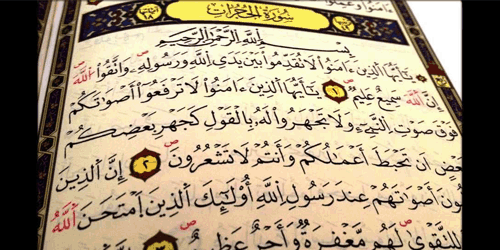 سُورَةُ الْحُجُرَاتِ
بِسْمِ اللَّهِ الرَّحْمَٰنِ الرَّحِيمِ
يَا أَيُّهَا الَّذِينَ ءَامَنُوا لَا تُقَدِّمُوا بَيْنَ يَدَيِ اللَّهِ وَرَسُولِهِ وَاتَّقُوا اللَّهَ
إِنَّ اللَّهَ سَمِيعٌ عَلِيمٌ ١ يَا أَيُّهَا الَّذِينَ ءَامَنُوا لَا تَرْفَعُوا أَصْوَاتَكُمْ
فَوْقَ صَوْتِ النَّبِيِّ وَلَا تَجْهَرُوا لَهُ بِالْقَوْلِ كَجَهْرِ بَعْضِكُمْ
أَنْ تَحْبَطَ أَعْمَالُكُمْ وَأَنْتُمْ لَا تَشْعُرُونَ ٢ إِنَّ الَّذِينَ
أَصْوَاتَهُمْ عِنْدَ رَسُولِ اللَّهِ أُولَٰئِكَ الَّذِينَ امْتَحَنَ اللَّهُ
لِلتَّقْوَىٰ لَهُمْ مَغْفِرَةٌ وَأَجْرٌ عَظِيمٌ